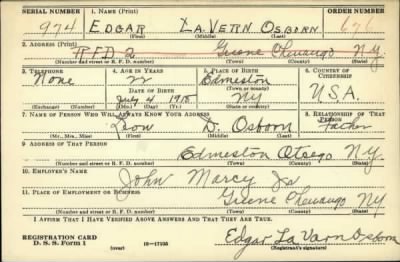 SERIAL NUMBER 1. NAME (Print) ORDER NUMBER
974 EDGAR LA.VERN OSBORN 676
(First) (Middle) (Last)
2. ADDRESS (Print)
R.F.D. 2 Greene Chenango N.Y.
(Number and street or R. F. D. number) (Town) (County) (State)
3. TELEPHONE 4. AGE IN YEARS 5. PLACE OF BIRTH 6. COUNTRY OF CITIZENSHIP
None 22 Edmeston
(Town or county)
DATE OF BIRTH
July 4 1918 NY U.S.A.
(Exchange) (Number) (Mo.) (Day) (Yr.) (State or country)
7. NAME OF PERSON WHO WILL ALWAYS KNOW YOUR ADDRESS 8. RELATIONSHIP OF THAT PERSON
Leon D. Osborn Father
(Mr., Mrs., Miss) (First) (Middle) (Last)
9. ADDRESS OF THAT PERSON
Edmeston Otsego N.Y.
(Number and street or R. F. D. number) (Town) (County) (State)
10. EMPLOYER'S NAME
John Marcy Jr
11. PLACE OF EMPLOYMENT OR BUSINESS
Greene Chenango NY
(Number and street or R. F. D. number) (Town) (County) (State)
I AFFIRM THAT I HAVE VERIFIED ABOVE ANSWERS AND THAT THEY ARE TRUE.
REGISTRATION CARD
D. S. S. Form 1 (over) 16—17105 Edgar La Vern Osborn
(Registrant's signature)